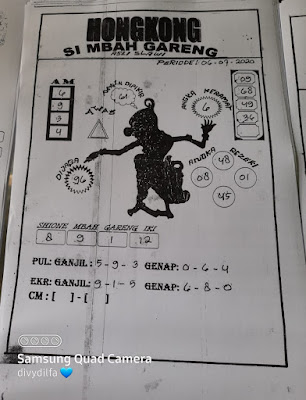 HONGKONG
SI MBAH GARENG
ASLI SLAWI
PERIODE: 06-07-2020
AM
6
9
3
4
61
TUPS
ANGKA MERAPAT
6
09
68
49
36
DIJAGA
96
48
08
01
45
SHIONE MBAH GARENG IKI
8 9 1 12
PUL: GANJIL: 5-9-3 GENAP: 0-6-4
EKR: GANJIL: 9-1-5 GENAP: 6-8-0
CM : [ ] - [ ]
Samsung Quad Camera
divydilfa